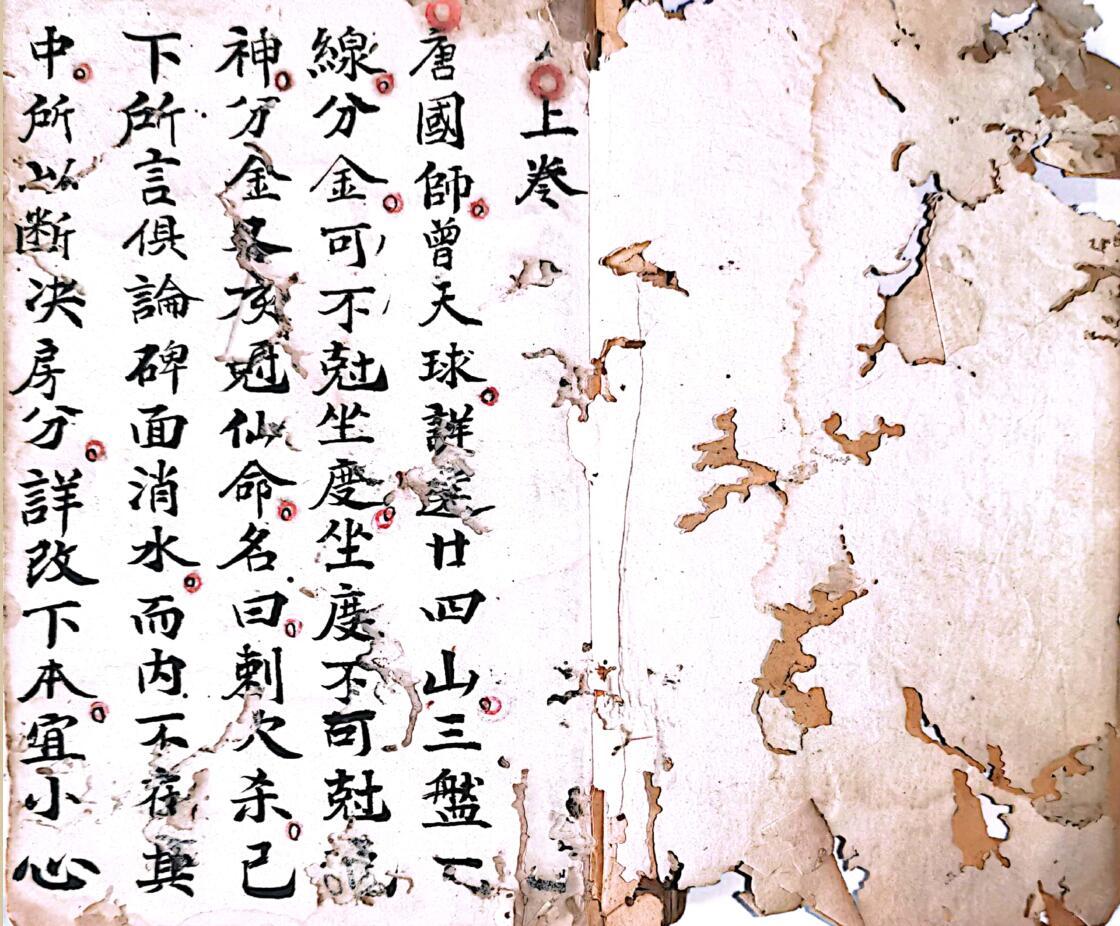 上卷
唐國師曾天球詳選廿四山三盤一
線分金可不尅坐度坐度不可尅
神分金仙命名曰刺穴杀已
下所言俱論碑面消水而内不在其
中所以断决房分詳改下本宜小心